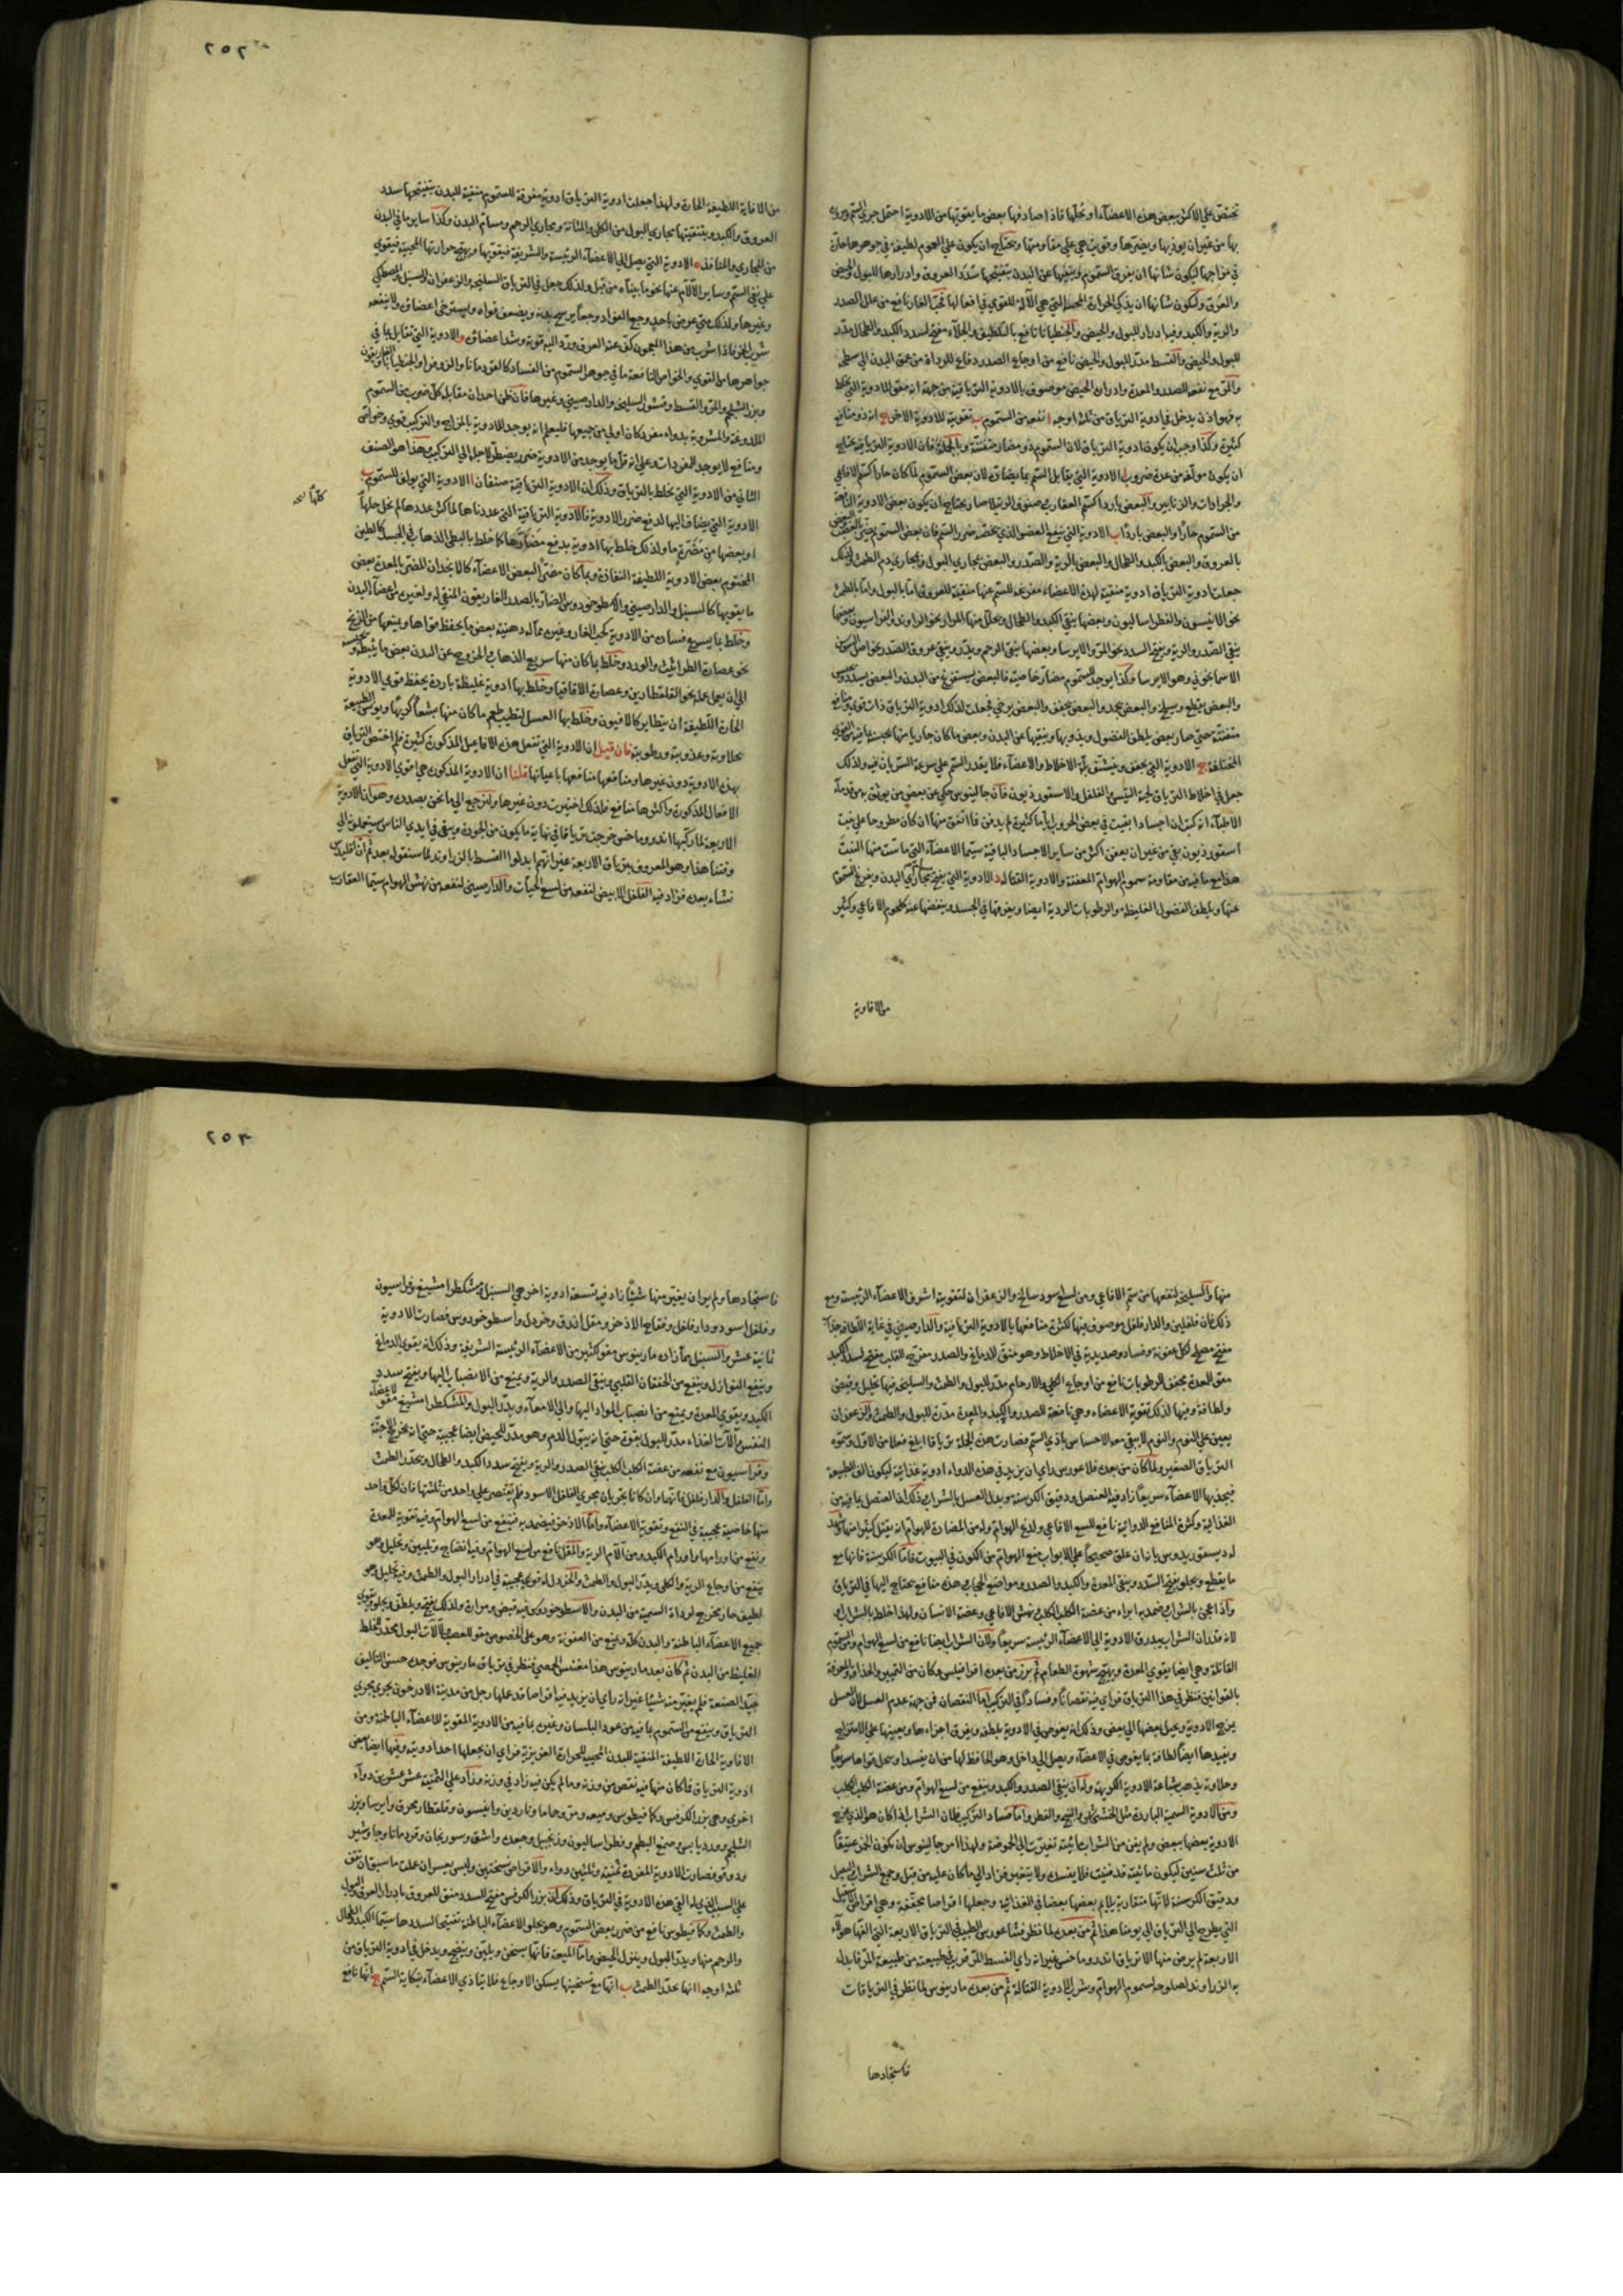 تختص على الاكثر ببعض هذه الاعضاء او بكلها فاذا صادفها بعض ما يقويها من الادوية احتمل جري السم ومروره
بها من غير ان يوذيها ويضرها وقويت هي على مقاومتها ويحتاج ان يكون على العموم لطيفة في جوهرها حارة
في مزاجها ليكون شانها ان يفرق السموم وينفيها عن البدن بتفتيحها سدد العروق وادرارها للبول والحيض
والعرق وليكون شانها ان يذكي الحرارة التي هي الآلة للقوي في افعالها فحب الغار نافع من علل الصدر
والرية والكبد وفيه ادرار للبول والحيض والجنطيانا نافع بالتلطيف والجلاء مفتح لسدد الكبد والطحال مدر
للبول والحيض والقسط مدر للبول والحيض نافع من اوجاع الصدر دفاع للرداة من عمق البدن الى سطحه
والمر مع نفعه للصدر والمعدة وادراره الحيض موصوف بالادوية الترياقية من جهة انه مقو للادوية التي يخلط
به فهو اذن يدخل في ادوية الترياق من ثلثة اوجه ا نفعه من السموم ب تقوية للادوية الاخر ج انه ذو منافع
كثيرة وكذا وجب ان يكون ادوية الترياق لان السموم ذو مضار متفننة وبالجملة فان الادوية الترياقية يحتاج
ان يكون مولفة من عدة ضروب ا الادوية التي يقابل السم بما يضاده لان بعض السموم لما كان حارا كسم الافاعي
والجرارات والزنابير والبعض باردا كسم العقارب صنوف الرتيلا صار يحتاج ان يكون بعض الادوية النافعة
من السموم حارا والبعض باردا ب الادوية التي ينفع العضو الذي يخصه ضرر السم فان بعض السموم يضر
بالعروق والبعض بالكبد والطحال والبعض بالرية والصدر والبعض بمجاري البول ومجاري دم الطمث ولذلك
جعلت ادوية الترياق ادوية منقية لهذه الاعضاء مفرغة للسم عنها منقية للعروق اما بالبول واما بالطمث
نحو الانيسون والفطراساليون وبعضها ينقي الكبد والطحال ويحلل منها المواد نحو الراوند والفراسيون وبعضها
ينقي الصدر والرية ويفتح السدد نحو المر والايرسا وبعضها ينقي الرحم ويدر وينقي عروق الصدر نحو اصل السوسن
الاسمانجوني وهو الايرسا وكذا يوجد للسموم مضار خاصية فالبعض يستفرغ من البدن والبعض يسدد
والبعض يقطع ويسيل والبعض يجمد والبعض يجفف والبعض يرخي فجعلت لذلك ادوية الترياق ذات قوي ومنافع
متفننة حتى صار بعض يلطف الفضول ويذوبها وينقيها عن البدن وبعض ما كان جاريا منها يحبسه
المختلفة ج الادوية التي يجفف وينشف بلة الاخلاط والاعضاء فلا يقدر السم على سرعة السريان فيه ولذلك
جعل في اخلاط الترياق لحية التيس والفلفل والاسقورذيون فان جالينوس حكي عن بعض من يوثق به من قدماء
الاطباء انه كتب ان اجسادا بقيت في بعض الحروب اياما كثيرة لم يدفن فما اتفق منها ان كان مطروحا على نبت
اسقورذيون بقي من غير ان يعفن اكثر من ساير الاجساد الباقية سيما الاعضاء التي ماست منها النبت
هذا مع ما فيه من مقاومة سموم الهوام المعفنة والادوية القتالة د الادوية التي يفتح مجاري البدن ويفرغ السم
عنها ويلطف الفضول الغليظة والرطوبات الردية ايضا ويفرقها في الجسد وينفضها عنه كلحوم الافاعي وكثير
من الافاوية
٢٥٢
من الافاوية اللطيفة الحارة ولهذا جعلت ادوية الترياق ادوية مفرقة للسموم منقية للبدن بتفتيحها سدد
العروق والكبد وبتنقيتها مجاري البول من الكلى والمثانة ومجاري الرحم ومسام البدن وكذا ساير ما في البدن
من المجاري والمنافذ ه الادوية التي يصل الى الاعضاء الرئيسة والشريفة فيقويها ويهيج حرارتها المحيية فيقوي
على نفي السم وساير الآلام عنها نحو ما بيناه من قبل ولذلك جعل في الترياق السليخة والزعفران والسنبل والمصطكي
وغيرها ولذلك متي عرض باحد وجع الفواد وجعا يرسح بدنه ويضعف قواه ويسترخي اعضاؤه ولا ينفعه
شرب الخمر فاذا شرب من هذا المعجون كف عنه العرق ورد اليه قوته وشد اعضائه و الادوية التي تقابل بما في
جواهرها من القوي والخواص النافعة ما في جوهر السموم من الفساد كالقردمانا والزوفرا والجنطيانا والغاريقون
وبزر الشلجم والمر والقسط وقشور السليخة والدارصيني وغيرها فان ظن احد ان مقابلة كل ضرب من السموم
الملدوغة والمشروبة بدواء مفرد كان اولى من جميعها فليعلم انه يوجد للادوية بالمزاج والتركيب قوي وخواص
ومنافع لا يوجد للمفردات وعلى انه قل ما يوجد من الادوية ضرر يضطر لاجله الى التركيب وهذا هو الصنف
الثاني من الادوية التي يخلط بالترياق وذلك ان الادوية الترياقية صنفان ا الادوية التي يوافق السموم ب
الادوية التي يضاف اليها لدفع ضرر الادوية فالادوية الترياقية التي عددناها لما كثر عددها لم يخل جلها
كلها نسخه
او بعضها من مضرة ما ولذلك خلط بها ادوية يدفع مضارها كما خلط بالبطي الذهاب في الجسد كالطين
المختوم بعض الادوية اللطيفة النفاذة وبما كان مضرا لبعض الاعضاء كالايخدان المضر بالمعدة بعض
ما يقويها كالسنبل والدارصيني والاسطوخودوس الضار بالصدر الغاريقون المنقي له ولغيره من اعضاء البدن
وخلط بما يسرع فساده من الادوية كحب الغار وغيره مما له دهنية بعض ما يحفظ قواها ويمنعها من الزنخ
نحو عصارة الطراثيث والورد وخلط بما كان منها سريع الذهاب في الخروج عن البدن بعض ما يثبطه ويحبسه
الى ان يعمل عمله نحو القلقطارين وعصارة الاقاقيا وخلط بها ادوية غليظة باردة يحفظ قوي الادوية
الحارة اللطيفة ان يتطاير كالافيون وخلط بها العسل لتطيب طعم ما كان منها بشعا كريها
بحلاوته وعذوبته ورطوبته فان قيل ان الادوية التي تفعل هذه الافاعيل المذكورة كثيرة فلم اختص الترياق
بهذه الادوية دون غيرها ومنافعها منافعها باعيانها قلنا ان الادوية المذكورة هي اقوي الادوية التي تفعل
الافعال المذكورة واكثرها منافع فلذلك اختيرت دون غيرها ولنرجع الى ما نحن بصدده وهو ان الادوية
الاربعة لما ركبها اندروماخس خرجت ترياقا في نهاية ما يكون من الجودة وبقي في ايدي الناس يستعملونه الى
وقتنا هذا وهو المعروف بترياق الاربعة غير انهم ابدلوا القسط بالزراوند لما سنقوله بعد ثم ان اقليدس
نشاء بعده فزاد فيه الفلفل الابيض لنفعه من لسع الحيات والدارصيني لنفعه من نهش الهوام سيما العقارب
منها والسليخة لنفعها من سم الافاعي ومن لسع اسود سالخ والزعفران لتقوية اشرف الاعضاء الرئيسة ومع
ذلك فان فلفلين والدارفلفل موصوف بينها لكثرة منافعها بالادوية الترياقية والدارصيني في غاية اللطافة جدا
مفتح مصلح لكل عفونة وفساد وصديدية في الاخلاط وهو منق للدماغ والصدر مفرح للقلب مفتح لسدد الكبد
مقو للمعدة مجفف للرطوبات نافع من اوجاع الكلى والارحام مدر للبول والطمث والسليخة فيها تحليل وقبض
ولطافة وفيها لذلك تقوية الاعضاء وهي نافعة للصدر والكبد والمعدة مدرة للبول والطمث والزعفران
يعين على النوم والنوم لا يبقي معه الاحساس باذي السم فصارت هذه الجملة ترياقا ابلغ فعلا من الاول وسموه
الترياق الصغير ولما كان من بعده فلاغورس راي ان يزيد في هذا الدواء ادوية غذائية ليكون الف للطبيعة
فيجذبها الاعضاء سريعا زاد فيه العنصل ودقيق الكرسنة وبدل العسل بالشراب وذلك ان العنصل بما فيه من
الغذائية وكثرة المنافع الدوائية نافع للسع الافاعي ولدغ الهوام وله من المضادة للهوام انه يقتل كثيرا منها وشهد
له ديسقوريدوس بانه ان علق صحيحا على الابواب منع الهوام من الكون في البيوت فاما الكرسنة فانها مع
ما يقطع ويجلو يفتح السدد وينقي المعدة والكبد والصدر ومواضع الحجاب وهذه منافع يحتاج اليها في الترياق
واذا عجن بالشراب ضمد به ابراء من عضة الكلب الكلب ونهش الافاعي وعضة الانسان ولهذا خلطه بالشراب
لانه قد ران الشراب يبدرق الادوية الى الاعضاء الرئيسة سريعا ولان الشراب ايضا نافع من لسع الهوام والسموم
القاتلة وهي ايضا يقوي المعدة ويهيج شهوة الطعام ثم برز من بعده افراقليس وكان من التمييز والحذاقة والمعرفة
بالقوانين فنظر في هذا الترياق فراي فيه نقصانا وفسادا في التركيب اما النقصان فمن جهة عدم العسل لان العسل
يمزج الادوية ويحيل بعضها الى بعض وذلك انه يغوص في الادوية يلطف ويفرق اجزاءها ويعينها على الامتزاج
ويفيدها ايضا لطافة بما يغوص في الاعضاء ويصل الى داخل وهو الحافظ لها من ان يفسد او ينحل قواها سريعا
وحلاوته يذهب بشاعة الادوية الكريهة وله ان ينقي الصدر والكبد وينفع من لسع الهوام ومن عضة الكلب الكلب
ومن الادوية السمية الباردة مثل الخشخاش والبنج والفطر واما فساد التركيب فان الشراب اذا كان هو الذي يمزج
الادوية بعضها ببعض ولم يفن من الشراب مائيته تغيرت الى الحموضة ولهذا امر جالينوس ان يكون الخمر عتيقا
من ثلث سنين ليكون مائيته قد فنيت فلا يفسد ولا يتغير فزاد الى ما كان عليه من قبل وجمع الشراب والبصل
ودقيق الكرسنة لانها متقاربة يلايم بعضها بعضا في الغذائية وجعلها اقراصا مجففة وهي اقراص الاشقيل
التي يطرح الى الترياق الى يومنا هذا ثم من بعده لما نظر فيثاغورس الطبيب في الترياق الاربعة التي الفها هولاء
الاربعة لم يرض منها الا ترياق اندروماخس غير انه راي القسط المر قريب في طبيعته من طبيعة المر فابدله
به الزراوند لصلوحه لسموم الهوام وشرب الادوية القتالة ثم من بعده مارينوس لما نظر في الترياقات
فاستجادها
٢٥٣
فاستجادها ولم ير ان يغير منها شيئا زاد فيه تسعة ادوية اخر هي السنبل ومشكطرامشيع وفراسيون
وفلفل اسود ودارفلفل وفقاح الاذخر ومقل ازرق وخردل واسطوخودوس فصارت الادوية
ثمانية عشر والسنبل مما زاده مارينوس مقو لكثير من الاعضاء الرئيسة الشريفة وذلك انه يقوي الدماغ
وينفع النوازل وينفع من الخفقان القلبي وينقي الصدر والرية ويمنع من الانصباب اليها ويفتح سدد
الكبد ويقوي المعدة ويمنع من انصباب المواد اليها والى الامعاء ويدر البول والمشكطرامشيع مقو لاعضاء
النفس وآلات الغذاء مدر للبول بقوة حتى انه يبول الدم وهو مدر للحيض ايضا عجيبة حتى انه يخرج الاجنة
وفراسيون مع نفعه من عضة الكلب الكلب ينقي الصدر والرية ويفتح سدد الكبد والطحال ويحدر الطمث
واما الفلفل والدارفلفل فانهما وان كانا يجريان مجري الفلفل الاسود فلم يقتصر على واحد من ثلثتها فان لكل واحد
منها خاصية عجيبة في النفع وتقوية الاعضاء واما الاذخر فيضمد به فينفع من لسع الهوام وفيه تقوية للمعدة
ونفع من اورامها واورام الكبد ومن آلام الرية والمقل نافع من لسع الهوام وفيه انضاج وتليين وتحليل وهو
ينفع من اوجاع الرية والكلى ويدر البول والطمث والخردل له قوي عجيبة في ادرار البول والطمث وفيه تحليل وهو
لطيف حار يخرج لرداة السمية من البدن والاسطوخودوس فيه قبض ومرارة ولذلك يفتح ويلطف ويجلو ويقوي
جميع الاعضاء الباطنة والبدن كله ويمنع من العفونة وهو على الخصوص مقو للعصب وآلات البول محدر للخلط
الغليظ من البدن ثم كان بعد مارينوس هذا مغنس الحمصي فنظر في ترياق مارينوس فوجده حسن التاليف
جيد الصنعة فلم يغير منه شيئا غير انه راي ان يزيد فيه اقراصا قد عملها رجل من مدينة الاندرخون يجري مجري
الترياق وينفع من السموم بما فيه من عود البلسان وغيره بما فيه من الادوية المقوية للاعضاء الباطنة ومن
الافاوية الحارة اللطيفة المنقية للبدن المحيية للحرارة الغريزية فراي ان يجعلها احد ادويته وفيها ايضا بعض
ادوية الترياق فما كان منها فيه نقص من وزنه وما لم يكن فيه زاد في وزنه وزاد على الثمنية عشر عشرين دواء
اخري وهي بزر الكرفس وكمافيطوس وميعه ومو وحاما وناردين وانيسون وقلقطار محرق وايرسا وبزر
الشلجم وورد يابس وصمغ البطم وفطراساليون وزنجبيل وجعده واشق وسوربخان وقردمانا وجاوشير
ودوقو فصارت الادوية المفردة ثمنية وثلثين دواء والاقراص نسختين وليس بعسير ان علمت ما سبق ان تقف
على السبب الذي له القي هذه الادوية في الترياق وذلك ان بزر الكرفس مفتح للسدد منق للعروق بادرار العرق والبول
والطمث وكمافيطوس نافع من ضرر بعض السموم وهو يجلو الاعضاء الباطنة تفتيحا لسددها سيما الكبد والطحال
والرحم منها ويدر البول وينزل الحيض واما الميعة فانها يسخن ويلين وينضج ويدخل في ادوية الترياق من
ثلثة اوجه ا انها يحدر الطمث ب انها مع تسخينها يسكن الاوجاع فلا يتاذي الاعضاء بنكاية السم ج انها نافع